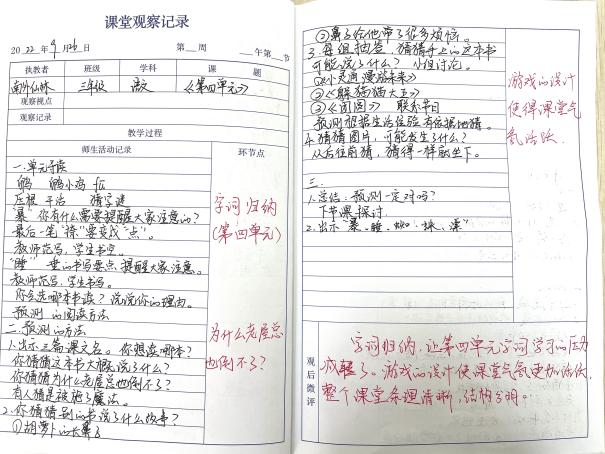 课堂观察记录
2022年9月26日 第__周 __午第__节
执教者 班级 学科 课题
三年级 语文 《第四单元》
观察视点
观察记录
教学过程
师生活动记录 环节点
一.单元导读
鹌鹑小鸡
压根 干活 猜字谜
"暴"你有什么需要提醒大家注意的?
最后一笔"捺"要变成"点"。
教师范写,学生书空。
"睡" 垂的书写要点,提醒大家注意。
教师范写,学生书写。
你会选哪本书读?说说你的理由。
预测的阅读方法
二.预测的方法
1.出示三篇课文名。你想读哪本?
你猜猜这本书大概说了什么?
你猜猜为什么老屋总也倒不了?
有人猜是被施了魔法。
2.你猜猜别的书说了什么故事?
①胡萝卜的长
字词归纳
(第四单元)
为什么老屋总
也倒不了?
②鼻子给他带了很多烦恼。
3.每组抽签,猜猜手上的这本书
可能说了什么?小组讨论。
①《小灵通漫游未来》
②《躲猫猫大王》
③《团圆》 联系节日
预测根据生活经验有依据地猜。
4.猜猜图片,可能发生了什么?
从后往前猜,猜得一样就坐下。
三.
1.总结:预测一定对吗?
下节课探讨。
2.出示"暴、睡、
游戏的设计
使得课堂气
氛活泼.
观后微评
字词归纳,让第四单元字词学习的压力
减轻了。游戏的设计使课堂气氛更加活泼,
整个课堂条理清晰,结构分明。